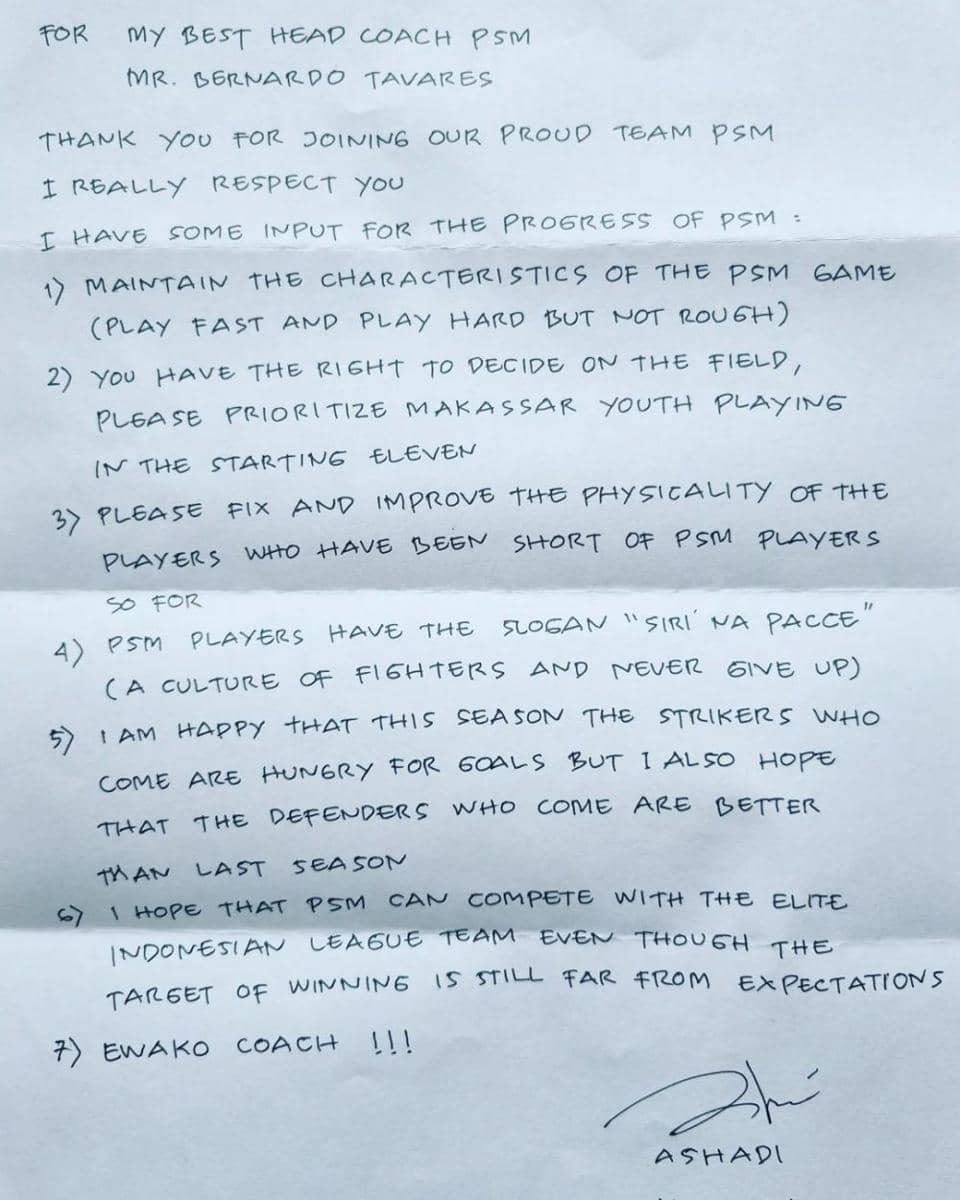 FOR MY BEST HEAD COACH PSM
MR. BERNARDO TAVARES
THANK YOU FOR JOINING OUR PROUD TEAM PSM
I REALLY RESPECT YOU
I HAVE SOME INPUT FOR THE PROGRESS OF PSM :
1) MAINTAIN THE CHARACTERISTICS OF THE PSM GAME
(PLAY FAST AND PLAY HARD BUT NOT ROUGH)
2) YOU HAVE THE RIGHT TO DECIDE ON THE FIELD,
PLEASE PRIORITIZE MAKASSAR YOUTH PLAYING
IN THE STARTING ELEVEN
3) PLEASE FIX AND IMPROVE THE PHYSICALITY OF THE
PLAYERS WHO HAVE BEEN SHORT OF PSM PLAYERS
SO FOR
4) PSM PLAYERS HAVE THE SLOGAN "SIRI' NA PACCE"
(A CULTURE OF FIGHTERS AND NEVER GIVE UP)
5) I AM HAPPY THAT THIS SEASON THE STRIKERS WHO
COME ARE HUNGRY FOR GOALS BUT I ALSO HOPE
THAT THE DEFENDERS WHO COME ARE BETTER
THAN LAST SEASON
6) I HOPE THAT PSM CAN COMPETE WITH THE ELITE
INDONESIAN LEAGUE TEAM EVEN THOUGH THE
TARGET OF WINNING IS STILL FAR FROM EXPECTATIONS
7) EWAKO COACH !!!
ASHADI